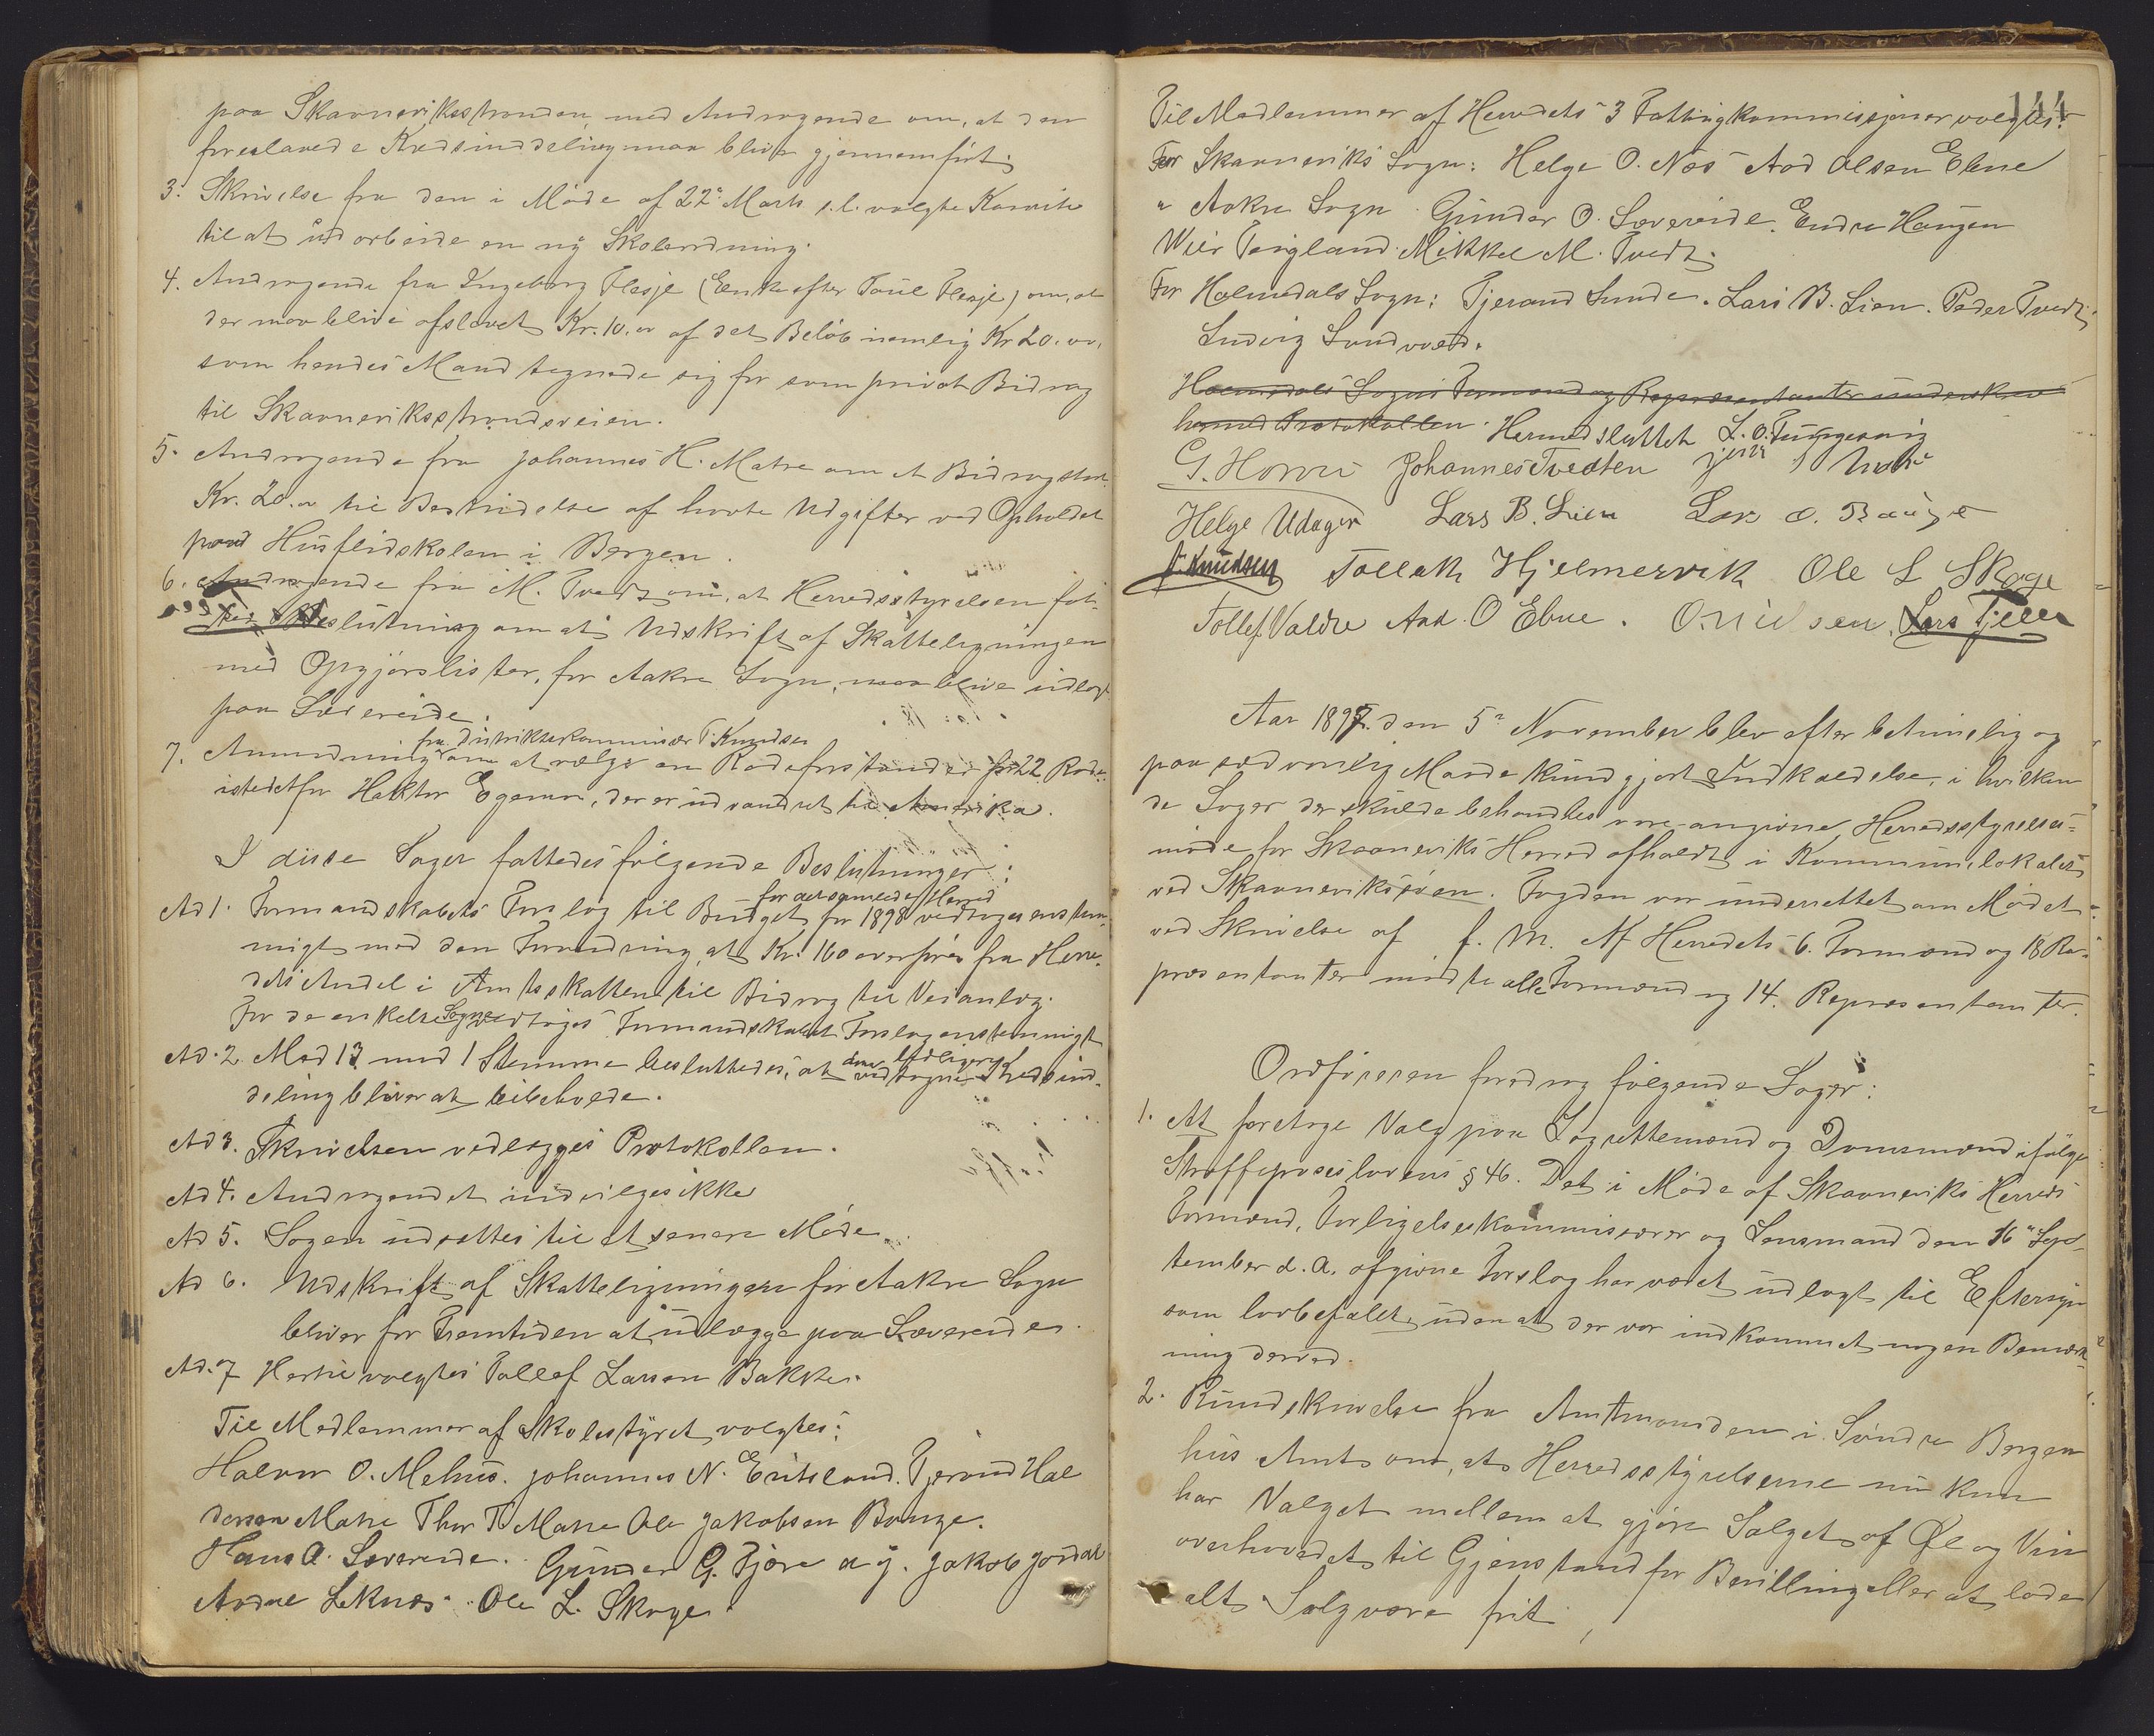 paa Skaanevikstranden med Andragende om, at den
foreslaaede Kredsinddeling maa bliver gjennemført.
3. Skrivelse fra den i Møde af 22de Marts s.l. valgte Komite
til at udarbeide en ny Skoleordning.
4. Andragende fra Ingeborg Flesje (Enke efter Poul Flesje) om, at
der maa blive afslaaet Kr. 10.00 af det Beløb nemlig Kr 20.00,
som hendes Mand tegnede sig for som privat Bidrag
til Skaanevikstrandsveien.
5. Andragende fra Johannes H. Matre om et Bidrag stort
Kr. 20.00 til Bestridelse af havte Udgifter ved Opholdet
paa Husflidskolen i Bergen.
6. Andragende fra M. Tvedt om, at Herredsstyrelsen fat-
ted Beslutning om at Udskrift af Skatteligningen
med Opgjørslister, for Aakre Sogn, maa blive udlagt
paa Sævereide.
fra Distriktskommissær T. Knudsen
7. Anmodning om at vælge en Rodeforstander for 22 Rode
istedetfor Haktor Egernes, der er udvandret til Amerika.
I disse Sager fattedes følgende Beslutninger:
for det samlede Herred
Ad 1. Formandskabets Forslag til Budget for 1898 vedtoges enstem-
migt med den Forandring, at Kr. 160 overføres fra Herre-
dets Andel i Amtsskatten til Bidrag til Veianlæg.
For de enkelte Sogne vedtoges Formandskabets Forslag enstemmigt
Ad. 2. Mod 13 mod 1 Stemme besluttedes, at den tidligere vedtagne Kredsind-
deling bliver at beibeholde.
Ad 3. Skrivelsen vedlægges Protokollen.
Ad 4. Andragendet indvilges ikke
Ad 5. Sagen udsættes til et senere Møde.
Ad 6. Udskrift af Skatteligningen for Aakre Sogn
bliver for Fremtiden at udlægge paa Sævereide.
Ad. 7 Hertil valgtes Tollef Larsen Bakke.
Til Medlemmer af Skolestyret valgtes:
Halvor O. Mehus. Johannes N. Eritsland. Tjerand Hal
dorsen Matre Thor T. Matre Ole Jakobsen Bauge.
Hans A. Sævereide. Gunder G. Fjøre d y. Jakob Jordal
Aadne Leknes. Ole L. Skoge
144
Til Medlemmer af Herredets 3 Fattigkommissjoner valgtes:
For Skaaneviks Sogn: Helge O. Næs Aad Olsen Ebne
" Aakre Sogn Gunder O. Sævereide. Endre Haugen
Wier Teigland. Mikkel M. Tvedt.
For Holmedals Sogn: Tjerand Sunde. Lars B. Lien. Peder Tvedt,
Ludvig Sandvold.
Holmedals Sogns Formænd og Repræsentanter underskrev
hermed Protokollen. Hermed sluttet L. O. Tungesvig
G. Horve Johannes Tvedten
Helge Udager Lars B. Lien Lars O. Bauge
T. Knudsen Tollak Hjelmervik Ole L Skoge
Tollef Valdre Aad. O Ebne. Lars Fjelle
Aar 1897 den 5te November blev efter betimelig og
paa sædvanlig Maade kundgjort Indkaldelse, i hvilken
de Sager der skulde behandles vare angivne Herredsstyrelses=
møde for Skaaneviks Herred afholdt i Kommunelokalet
ved Skaanevikssøen. Fogden var underrettet om Mødet
ved Skrivelse af f. M. Af Herredets 6 Formænd og 18 Re-
præsentanter mødte alle Formænd og 14 Repræsentanter.
Ordføreren foredrog følgende Sager:
1. At foretage Valg paa Lagrettemænd og Domsmænd ifølge
Straffeproseslovens § 46. Det i Møde af Skaaneviks Herreds
Formænd, Forligelseskommissærer og Lensmand den 16de Sep-
tember d. A. afgivne Forslag har været udlagt til Eftersyn
som lovbefalet, uden at der var indkommet nogen Bemærk-
ning derved.
2. Rundskrivelse fra Amtmanden i Søndre Bergen
hus Amt om, at Herredsstyrelserne nu kun
har Valget mellem at gjøre Salget af Øl og Vin
overhovedet til Gjenstand for Bevilling eller at lade
alt Salg være frit